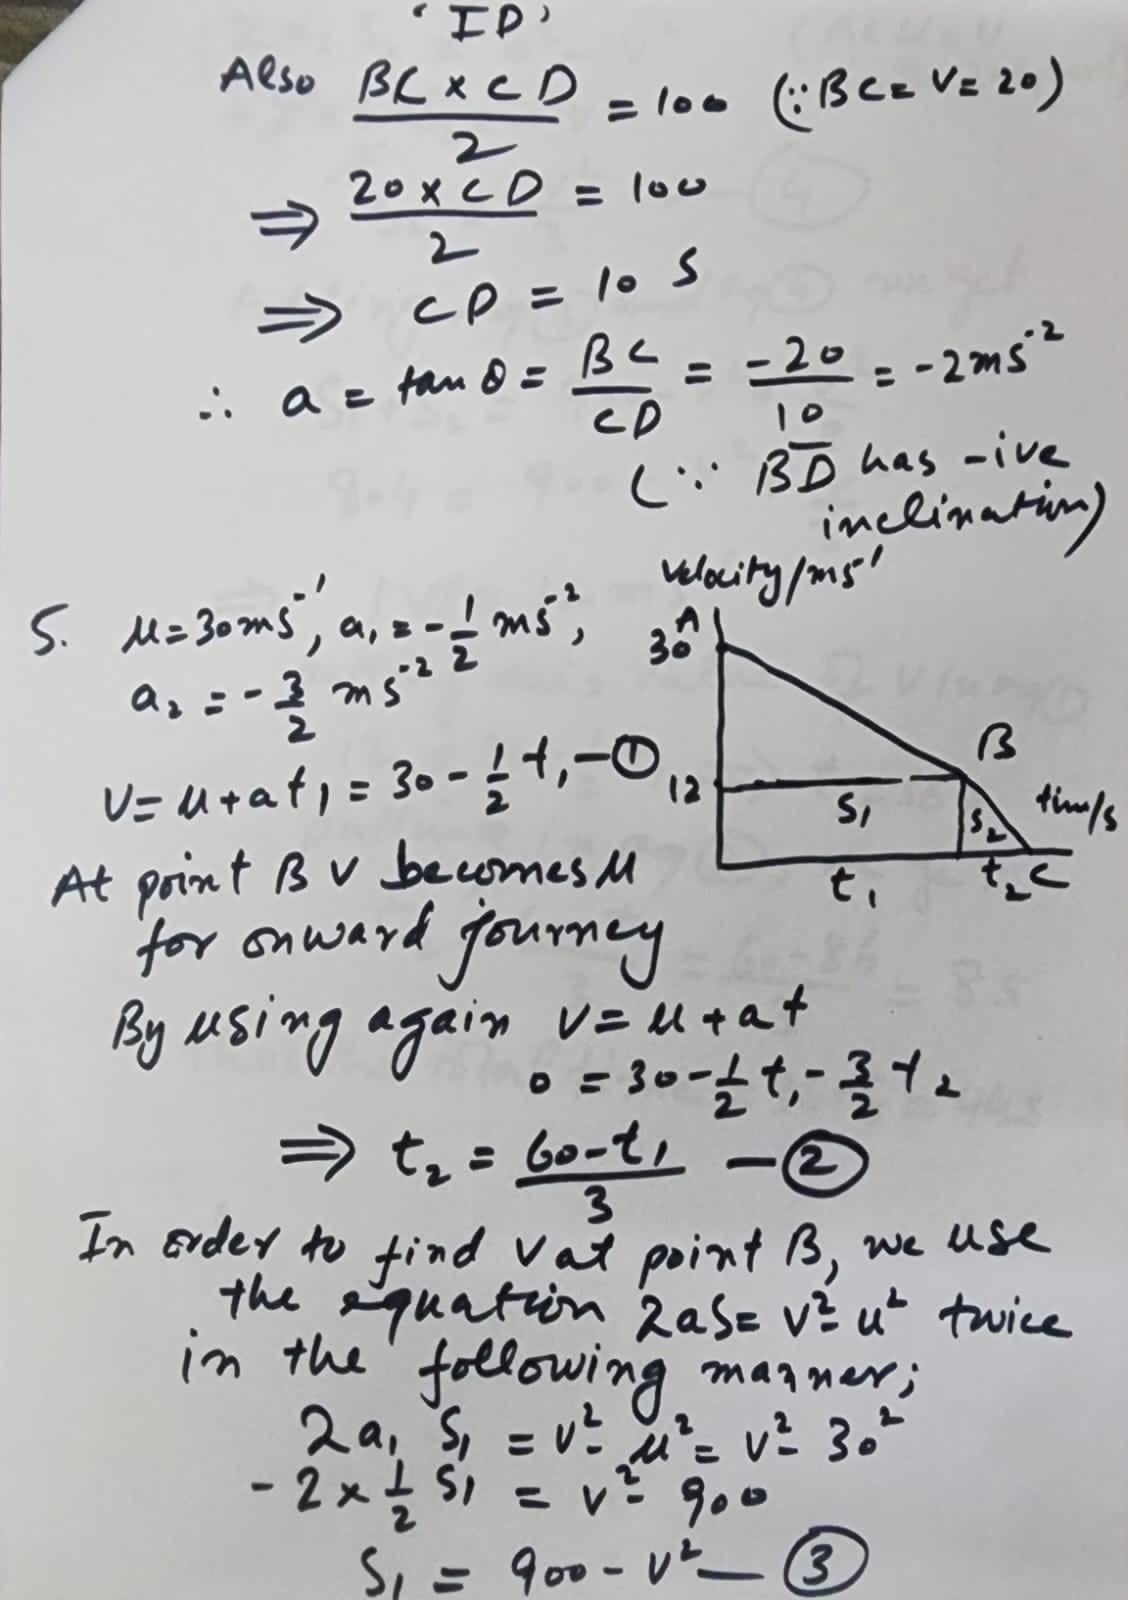 'ID'
Also BC × CD / 2 = 100 (∵ BC = V = 20)
⇒ 20 × CD / 2 = 100
⇒ CD = 10 s
∴ a = tan θ = BC / CD = -20 / 10 = -2 ms⁻²
(∵ B̅D̅ has -ive
inclination)
Velocity/ms⁻¹
5. u = 30 ms⁻¹, a₁ = -1/2 ms⁻²,
a₂ = -3/2 ms⁻²
V = u + at₁ = 30 - 1/2 t₁ — ①
A
30
B
12
S₁
S₂
time/s
t₁
t₂
C
At point B V becomes u
for onward journey
By using again V = u + at
0 = 30 - 1/2 t₁ - 3/2 t₂
⇒ t₂ = 60 - t₁ / 3 — ②
In order to find V at point B, we use
the equation 2as = V² - u² twice
in the following manner;
2a₁ S₁ = V² - u² = V² - 30²
-2 × 1/2 S₁ = V² - 900
S₁ = 900 - V² — ③